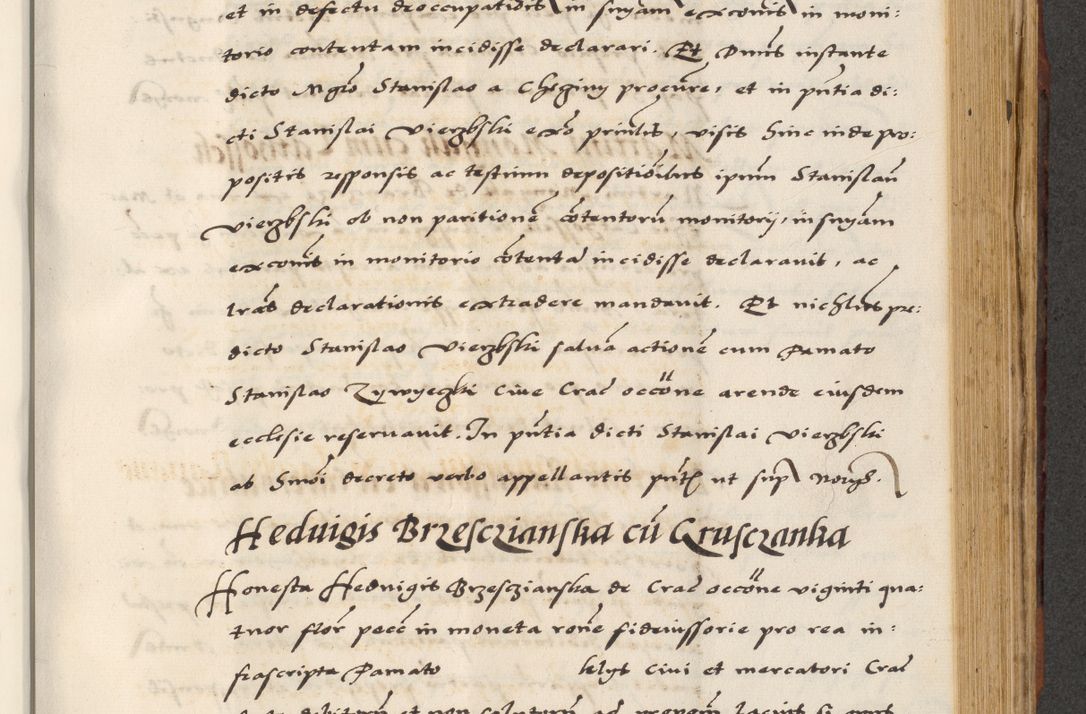 et in defectu deoccupationis in snyam excomis in moni:
torio contentam incidisse declarari. Et Dnus instante
dicto Mgro Stanislao a Chęginy procure, et in pntia di:
cti Stanislai Vierzbski ex͠o prinlis, visis hinc inde pro:
positis responsis ac testium depositioibus ipum Stanislau
Vierzbski ob non paritione cotentoru monitorij, in snyam
excomis in monitorio cotenta incidisse declaravit, ac
lras declarationis extradere mandavit. Et nichlus pre:
dicto Stanislao Vierzbski salva actione cum Famato
Stanislao Zywyeczki Cive Crac occone arende eiusdem
ecclesie reservavit. In pntia dicti Stanislai Vierzbski
ab hmoi decreto verbo appellantis pnt ut sup
Hedvigis Brzesczianska cu Grusczanka
Honesta Hedvigis Brzesczianska de Crac occone viginti qua:
tuor flor pecc in moneta rone fideiussorie pro rea in:
frascripta Famato civi et mercatori Crac